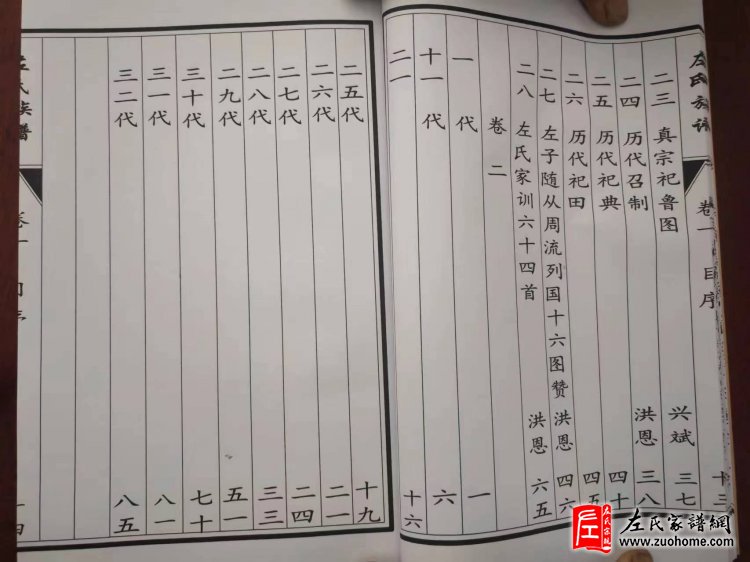 左氏族谱 卷一 目序 十三
二三 真宗祀鲁图 兴斌 三七
二四 历代召制 洪恩 三八
二五 历代祀典 四十
二六 历代祀田 四五
二七 左子随从周流列国十六图赞 洪恩 四六
二八 左氏家训六十四首 洪恩 六五
卷二
一代 一
十一代 六
二一 十六
二五代 十九
二六代 二一
二七代 二四
二八代 三三
二九代 五一
三十代 七十
三一代 八一
三二代 八五
左氏宗亲
左氏家譜網
www.zuohome.com